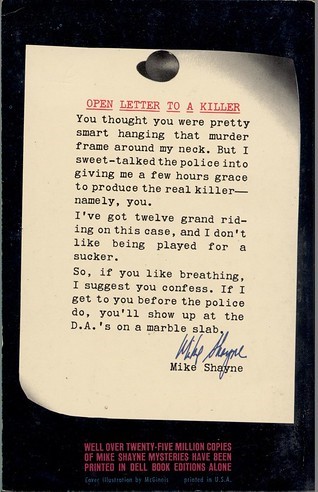 OPEN LETTER TO A KILLER
You thought you were pretty
smart hanging that murder
frame around my neck. But I
sweet-talked the police into
giving me a few hours grace
to produce the real killer—
namely, you.
I've got twelve grand rid-
ing on this case, and I don't
like being played for a
sucker.
So, if you like breathing,
I suggest you confess. If I
get to you before the police
do, you'll show up at the
D.A.'s on a marble slab.
Mike Shayne
Mike Shayne
WELL OVER TWENTY-FIVE MILLION COPIES
OF MIKE SHAYNE MYSTERIES HAVE BEEN
PRINTED IN DELL BOOK EDITIONS ALONE
Cover illustration by McGinnis printed in U.S.A.